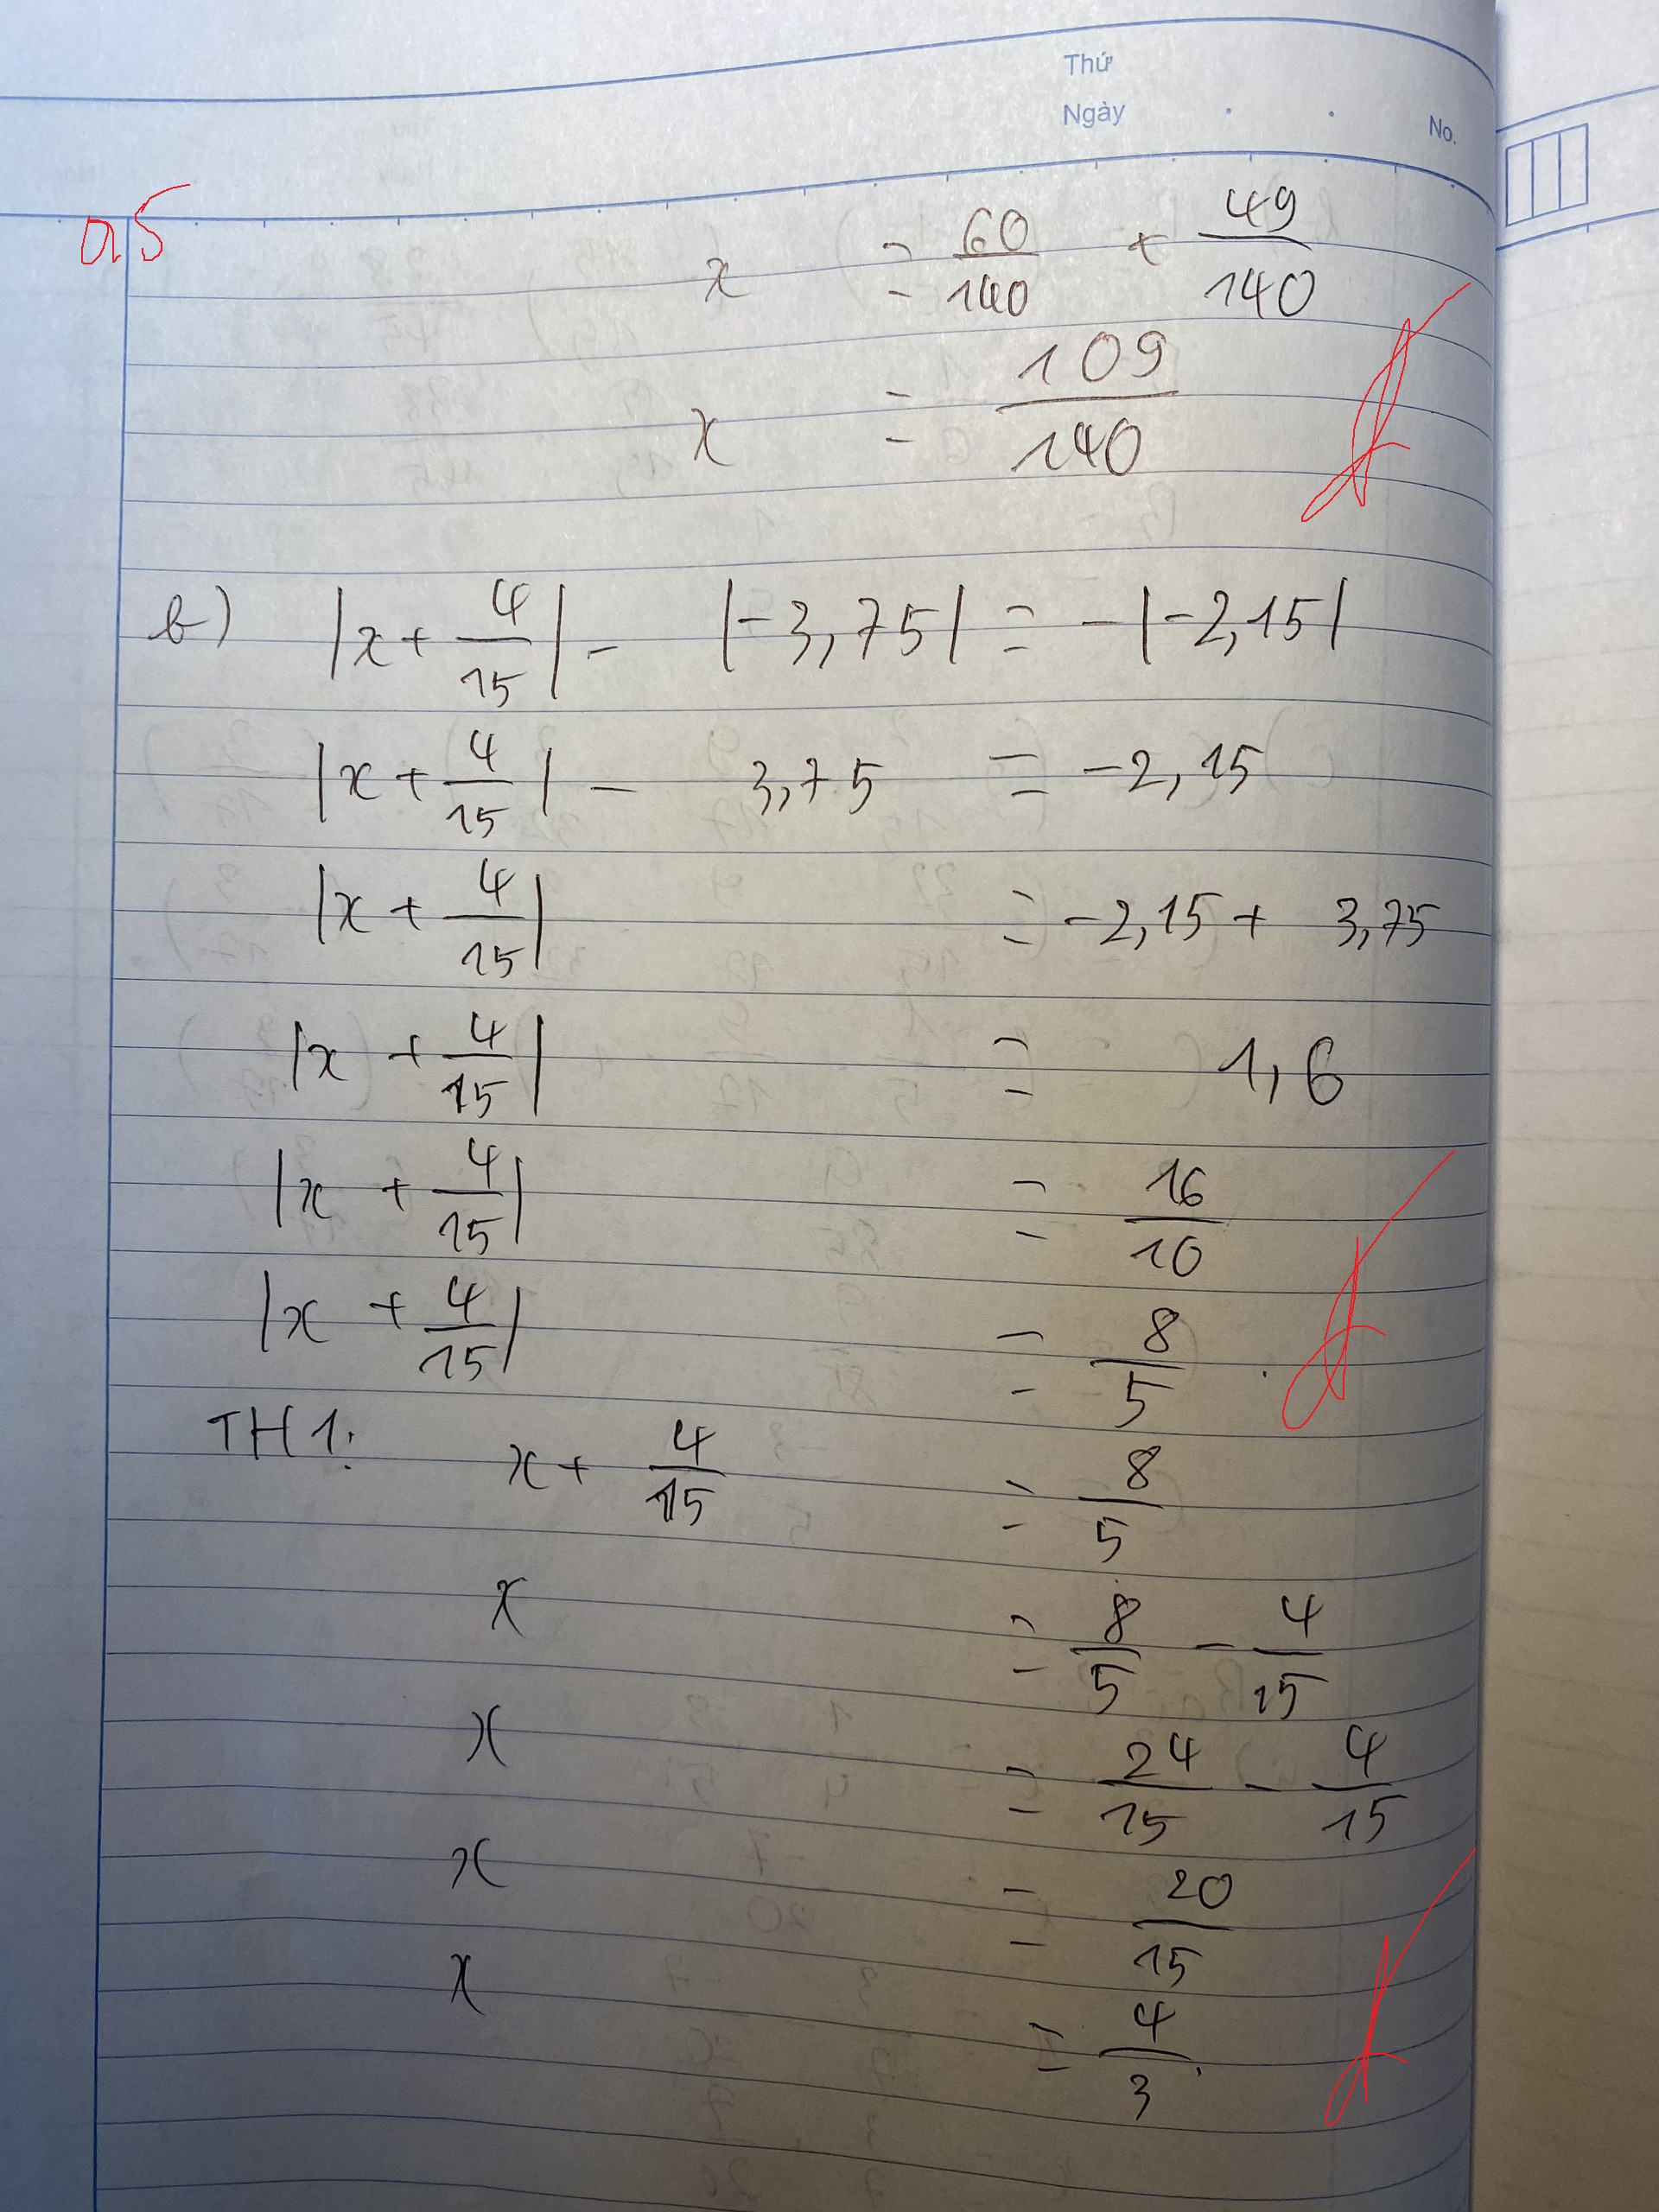 Thứ
Ngày
No.
0,5
x = 60/140 + 49/140
x = 109/140
b) |x + 4/15| - |-3,75| = -|-2,15|
|x + 4/15| - 3,75 = -2,15
|x + 4/15| = -2,15 + 3,75
|x + 4/15| = 1,6
|x + 4/15| = 16/10
|x + 4/15| = 8/5.
TH1: x + 4/15 = 8/5
x = 8/5 - 4/15
x = 24/15 - 4/15
x = 20/15
x = 4/3.